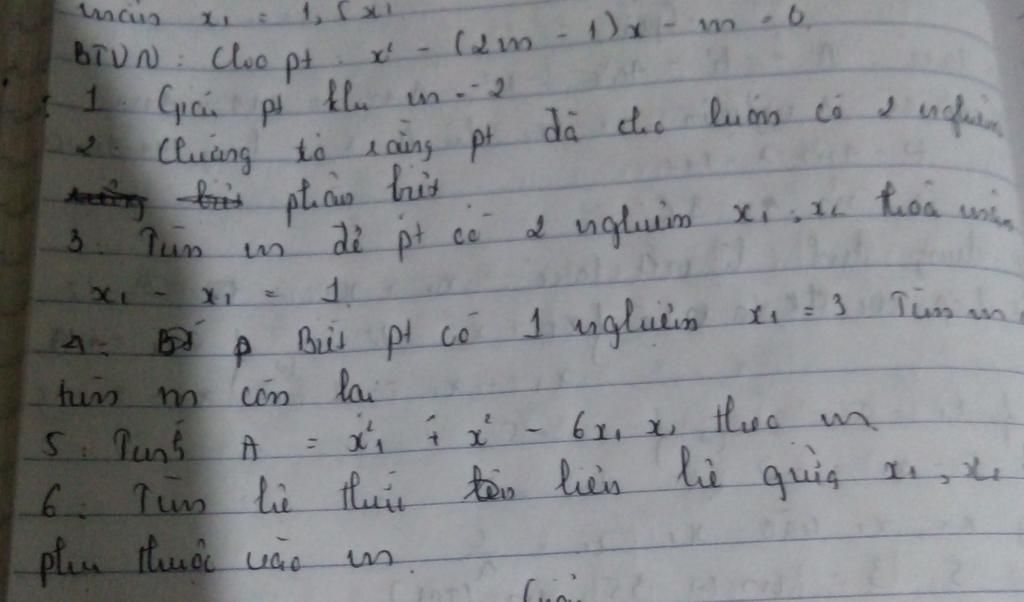 mãn x₁ = 1,5x₁
BTVN : Cho pt x² - (2m - 1)x - m = 0
1. Giải pt khi m = -2
2. Chứng tỏ rằng pt đã cho luôn có 2 nghiệm
phân biệt
3. Tìm m để pt có 2 nghiệm x₁, x₂ thoả mãn
x₁ - x₁ = 1
4. Biết pt có 1 nghiệm x₁ = 3 Tìm m,
tìm n còn lại
5. Tính A = x₁² + x² - 6x₁x₂ theo m
6. Tìm hệ thức liên hệ giữa x₁, x₂
phụ thuộc vào m.
Giải